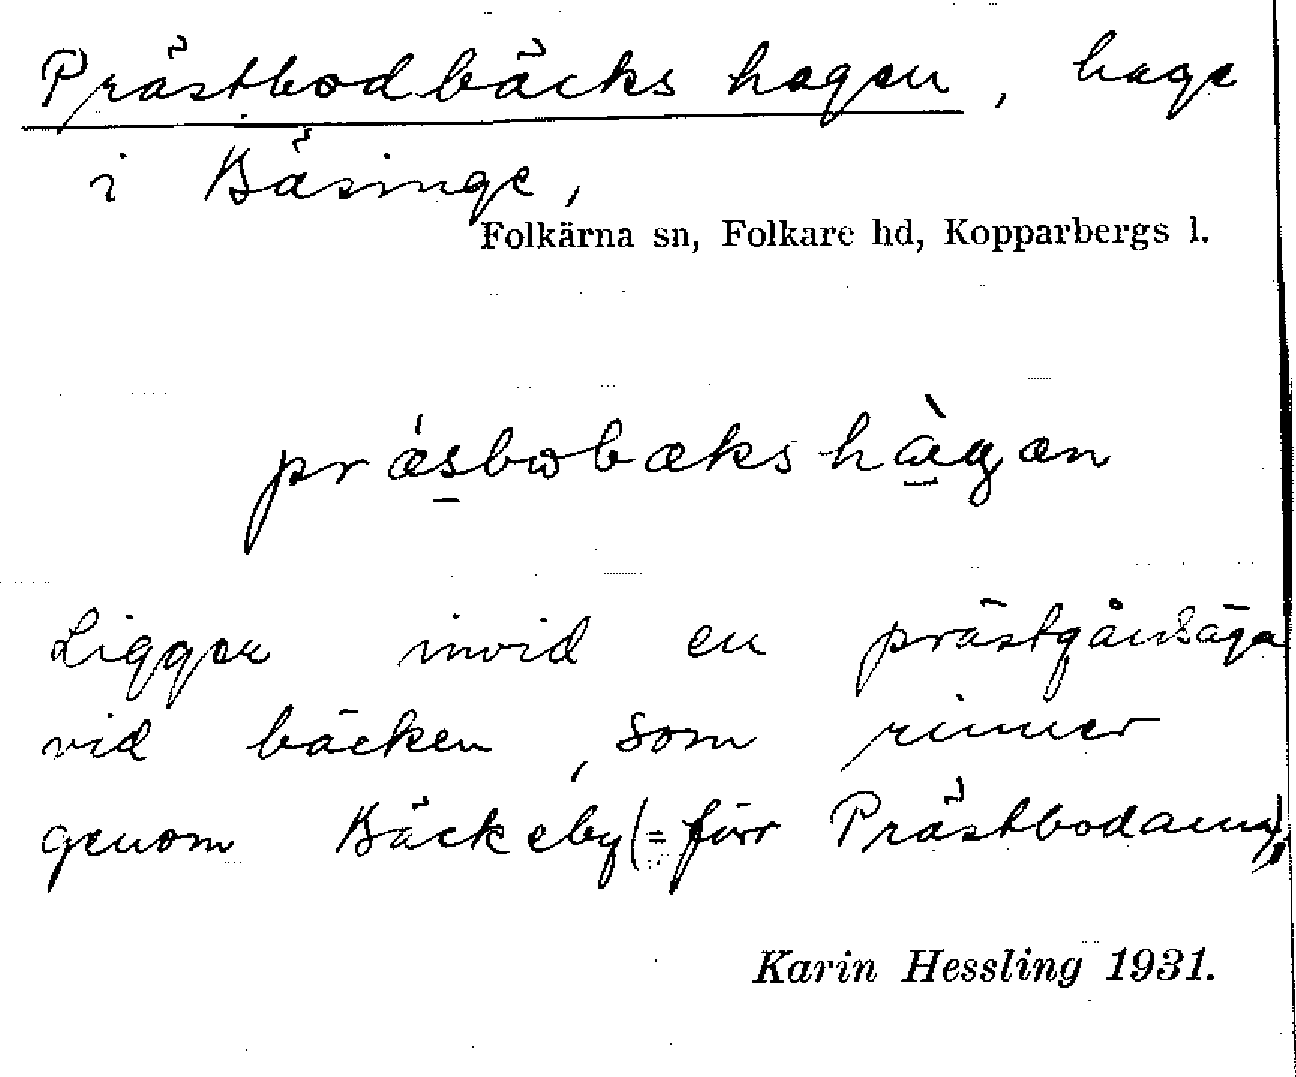 Prästbodbäckshagen, hage
i Bäsinge,
Folkärna sn, Folkare hd, Kopparbergs l.
prǽsbωbækshàgæn
Ligger invid en prästgårdsäga
vid bäcken, som rinner
genom Bäckeby (= förr Prästbodarna),
Karin Hessling 1931.